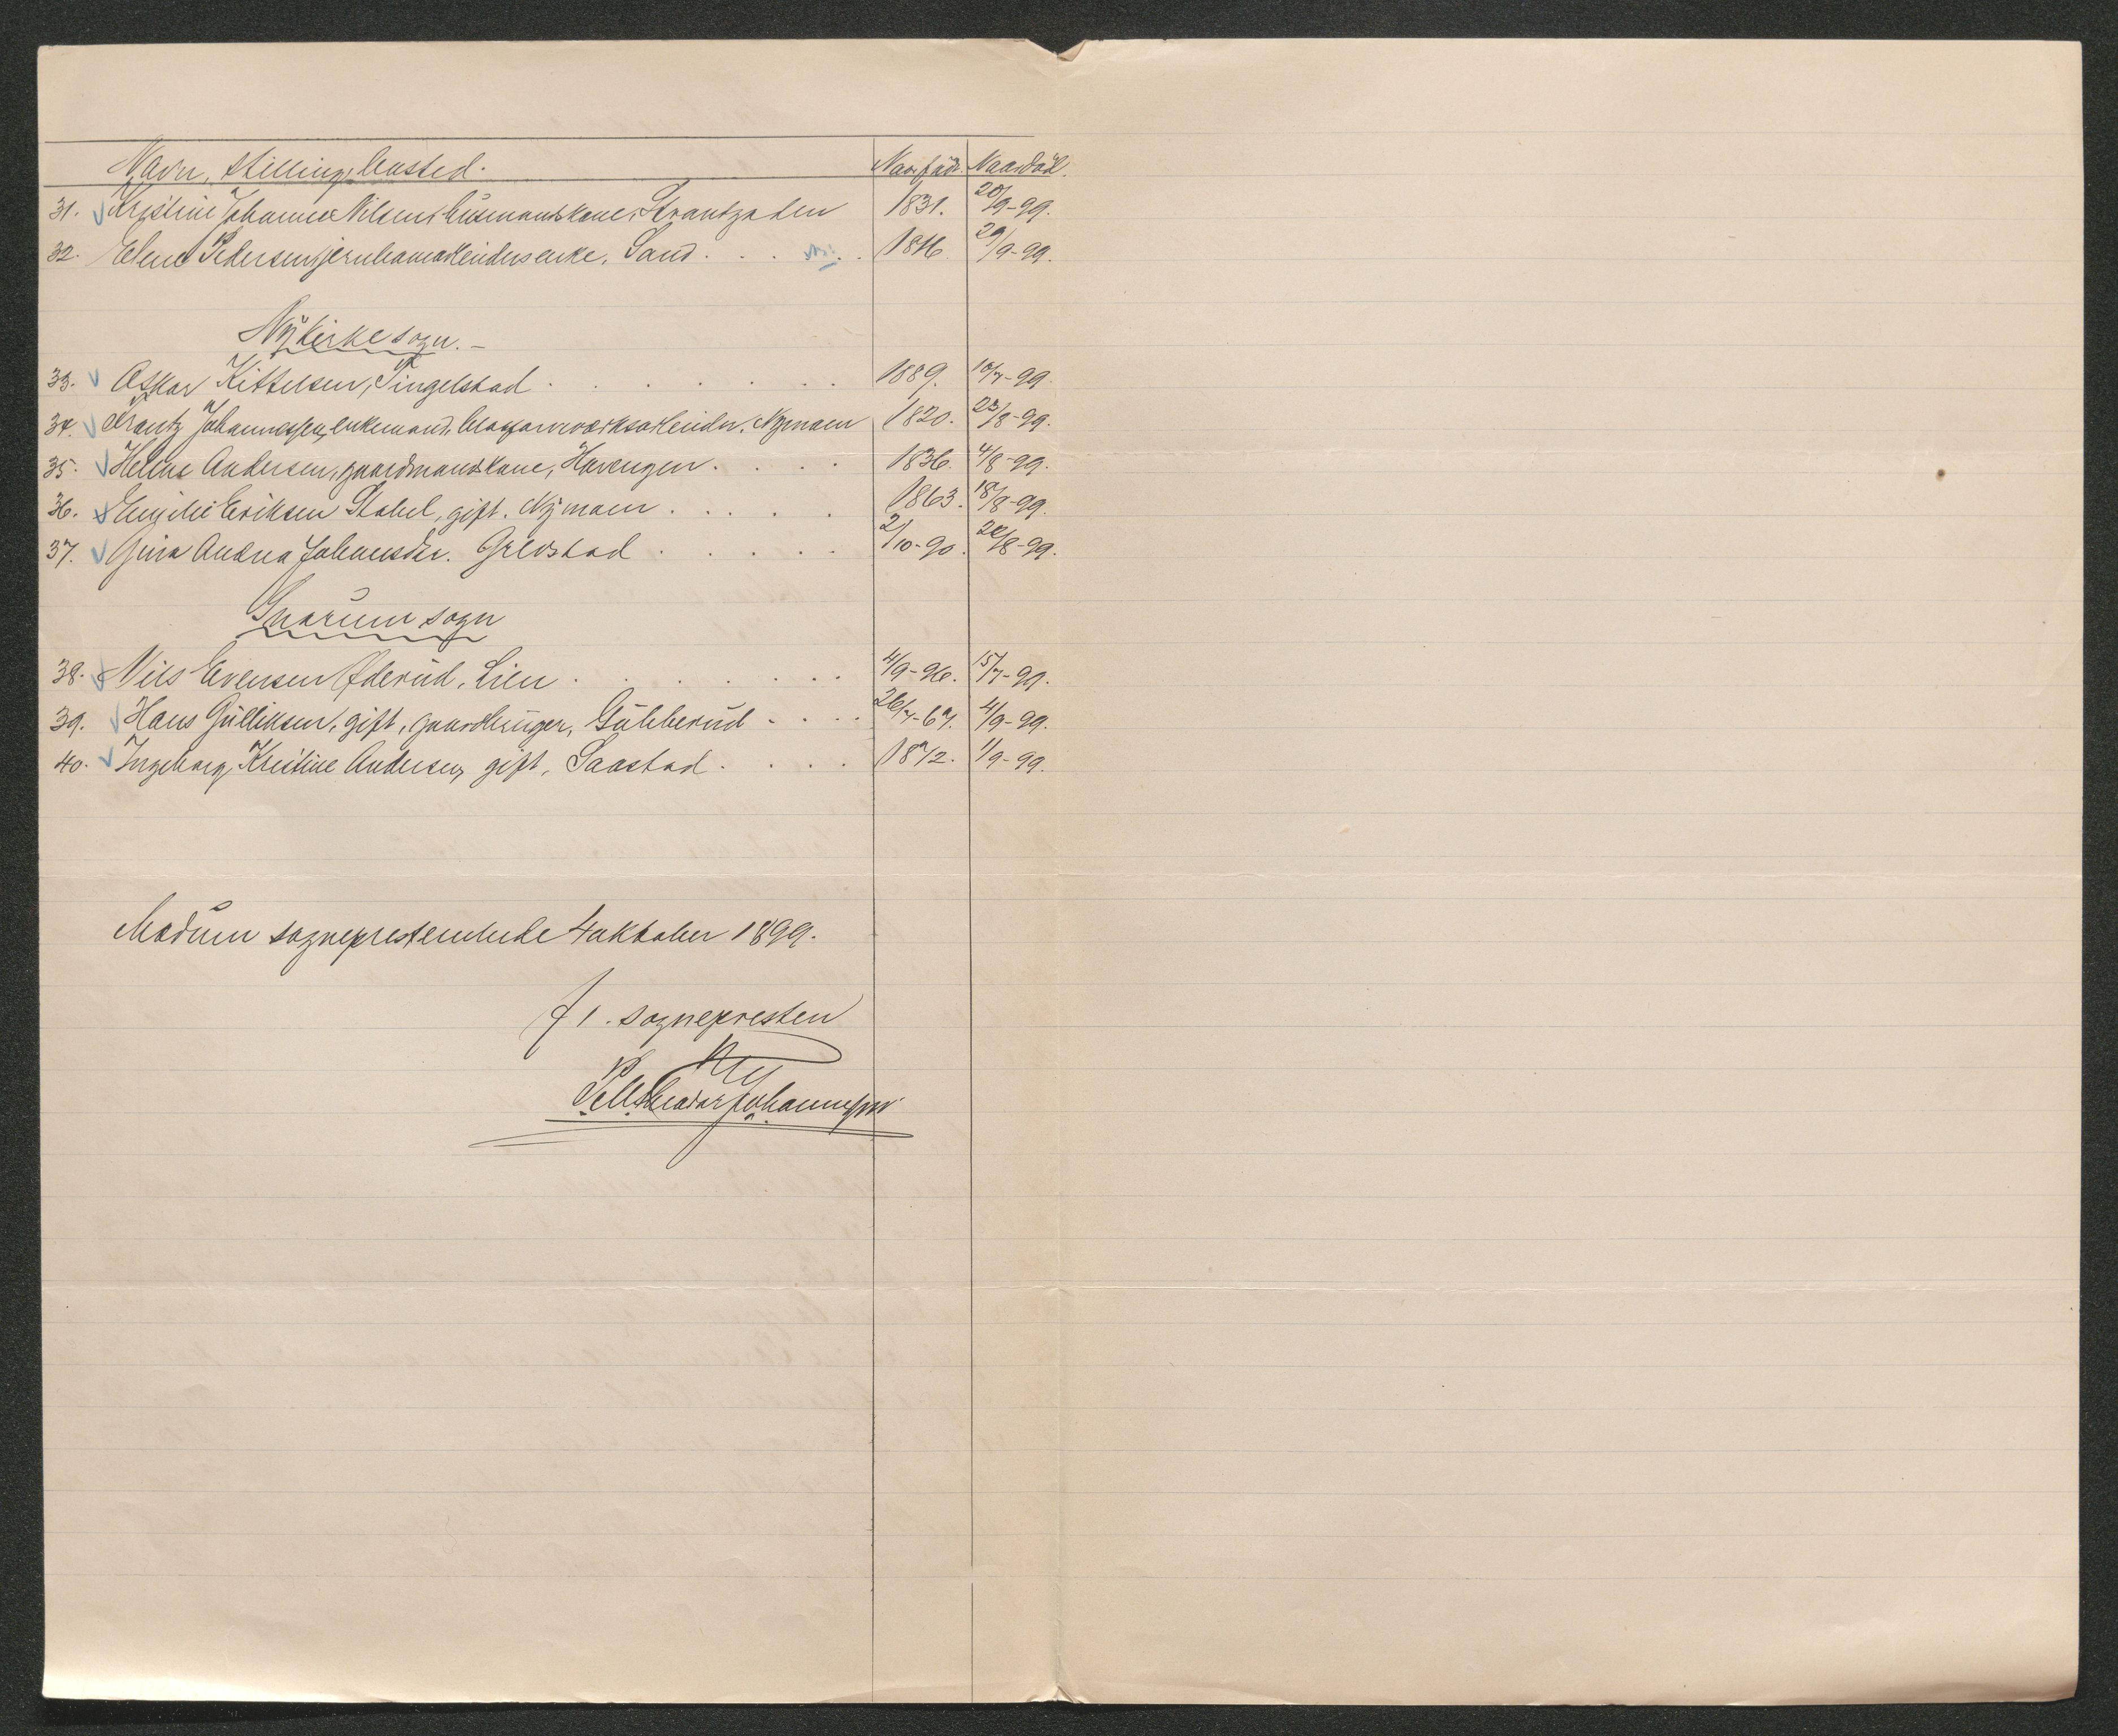 Navn, stilling, bosted. Naar född. Naar död.
31. Kristine Johanne Nilsen, husmandskone, Strantzaten 1831. 20/9-99.
32. Elene Pedersen, jernbanearbeidersenke, Sand 1816. 29/9-99.
Nykirke sogn.
33. Oskar Kittelsen, Tingelstad 1889. 10/7-99.
34. Frantz Johannessen, enkemand, blaafarveværksarbeider. Nymoen 1820. 23/8-99.
35. Helene Andersen, gaardmandskone, Havengen. 1836. 4/8-99.
36. Emilie Eriksen Stabel, gift. Nymoen 1863. 18/8-99.
37. Gina Andrea Johansdtr. Grevstad 2/10-90. 28/8-99.
Snarum sogn
38. Nils Evensen Øderud. Lien 4/9-96. 15/7-99.
39. Hans Gulliksen, gift, gaardbruger, Gubberud 26/7-67. 4/9-99.
40. Ingeborg Kristine Andersen, gift, Saastad 1872. 1/9-99.
Modum sogneprestembede 4 oktober 1899.
f s. sognepresten
Johannessen